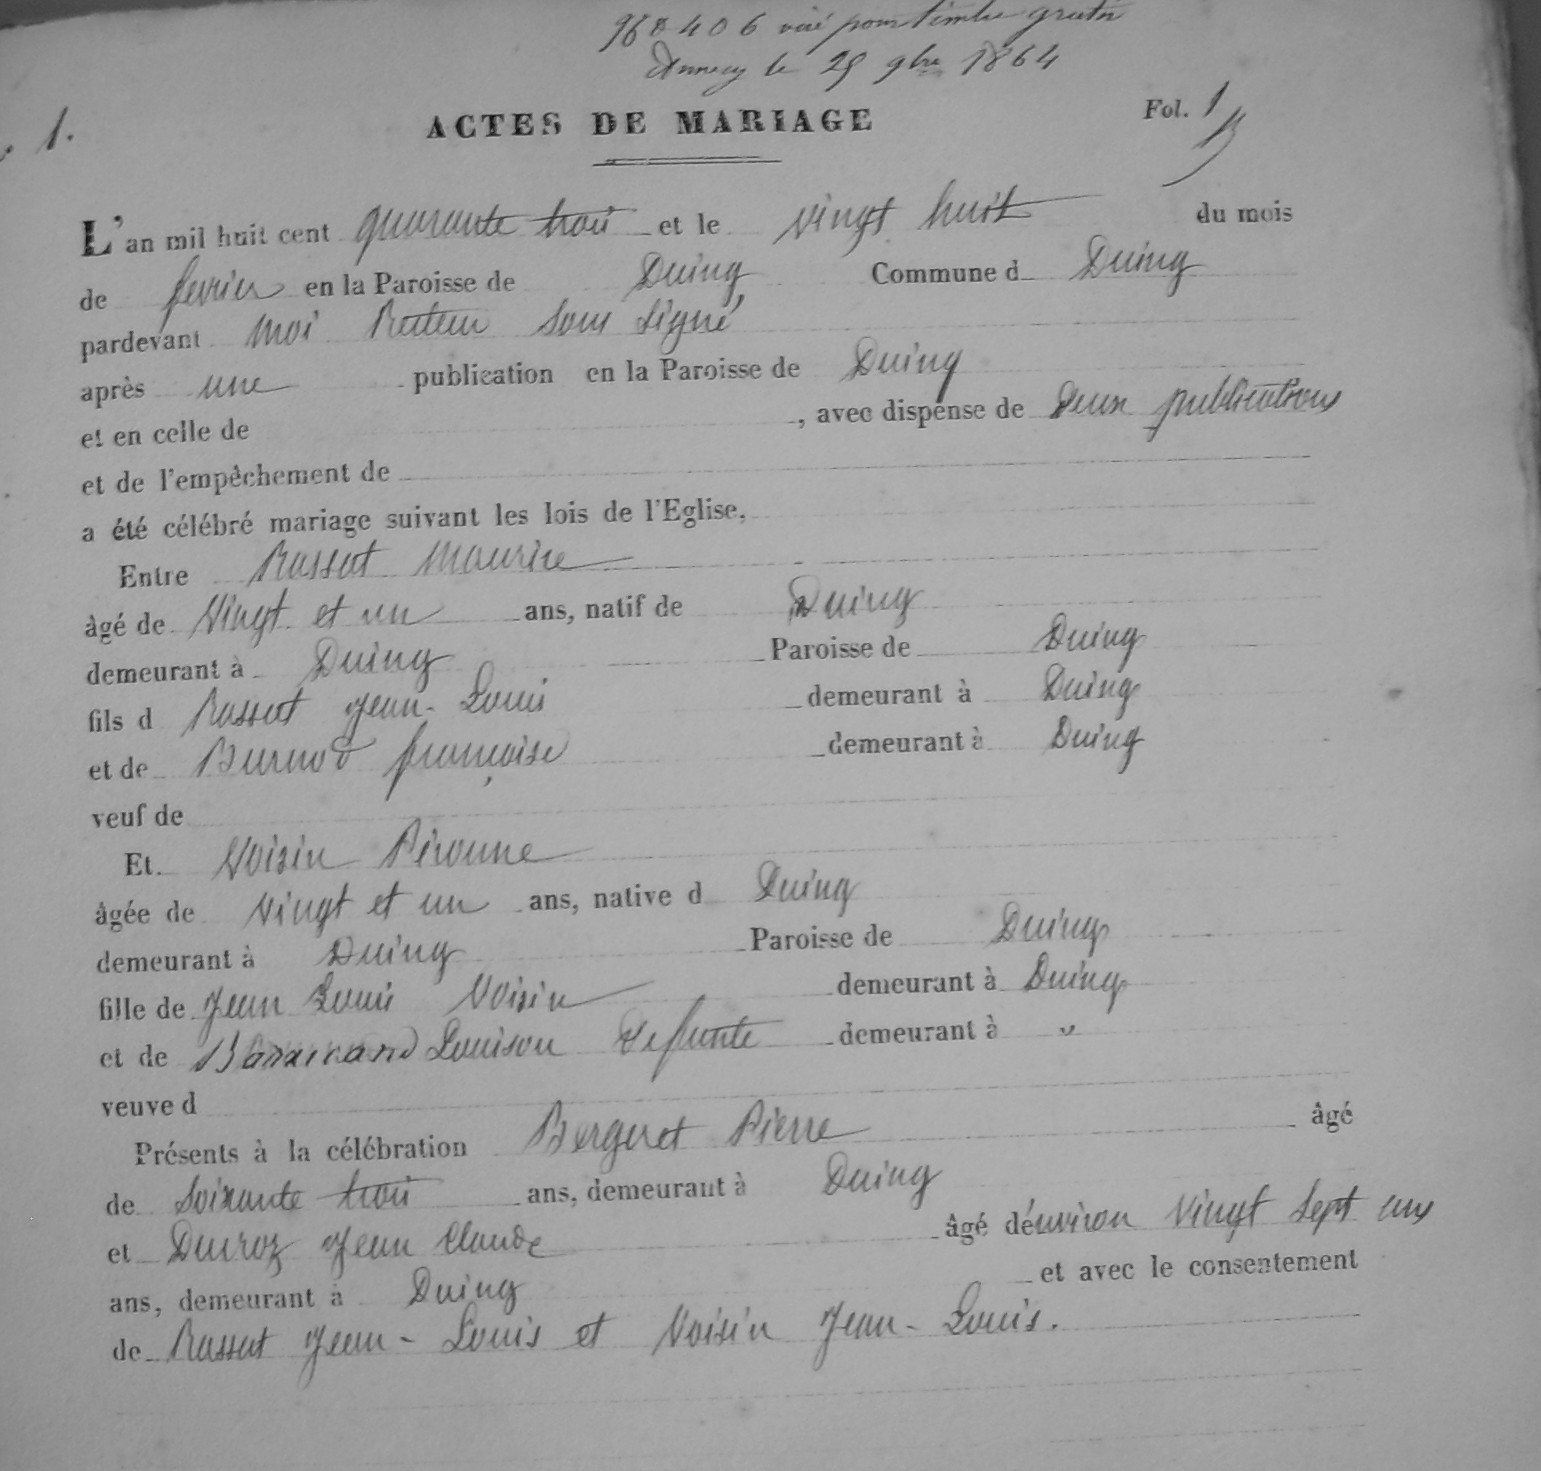 406 visé pour timbre gratis
Annecy le 25 9bre 1864
1.
ACTES DE MARIAGE
Fol. 1
L'an mil huit cent quarante trois et le vingt huit du mois
de fevrier en la Paroisse de Duing Commune d Duing
pardevant moi Recteur sous signé,
après une publication en la Paroisse de Duing
et en celle de , avec dispense de deux publications
et de l'empêchement de
a été célébré mariage suivant les lois de l'Eglise,
Entre Rassat Maurice
âgé de vingt et un ans, natif de Duing
demeurant à Duing Paroisse de Duing
fils d Rassat Jean-Louis demeurant à Duing
et de Burnod françoise demeurant à Duing
veuf de
Et Voisin Péronne
âgée de vingt et un ans, native d Duing
demeurant à Duing Paroisse de Duing
fille de Jean Louis Voisin demeurant à Duing
et de Louison defunte demeurant à "
veuve d
Présents à la célébration Bergeret Pierre âgé
de soixante trois ans, demeurant à Duing
et Duroz Jean Claude âgé d'environ vingt sept ans
ans, demeurant à Duing et avec le consentement
de Rassat Jean-Louis et Voisin Jean-Louis.